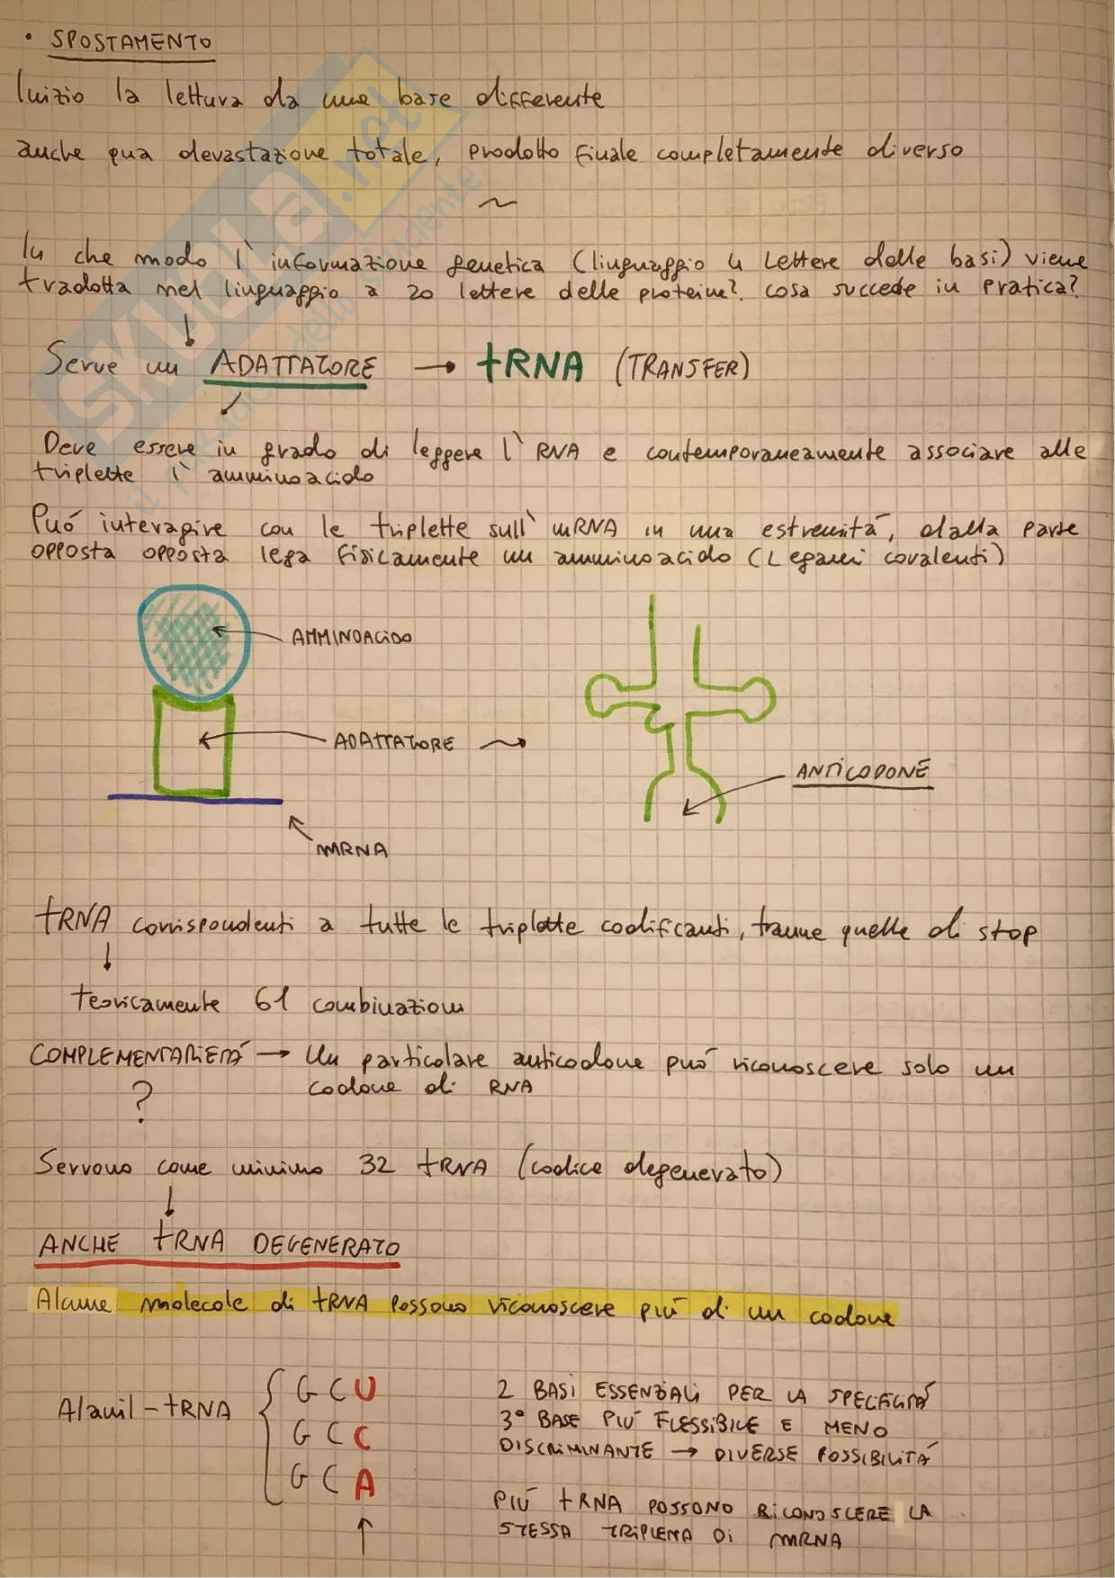 • SPOSTAMENTO
Inizio la lettura da una base differente
anche qua devastazione totale, prodotto finale completamente diverso
~
In che modo l'informazione genetica (linguaggio 4 lettere delle basi) viene
tradotta nel linguaggio a 20 lettere delle proteine? cosa succede in pratica?
↓
Serve un ADATTATORE → tRNA (TRANSFER)
Deve essere in grado di leggere l'RNA e contemporaneamente associare alle
triplette l'amminoacido
Può interagire con le triplette sull'mRNA in una estremità, dalla parte
opposta opposta lega fisicamente un amminoacido (Legami covalenti)
AMMINOACIDO
ADATTATORE
ANTICODONE
mRNA
tRNA corrispondenti a tutte le triplette codificanti, tranne quelle di stop
↓
teoricamente 61 combinazioni
COMPLEMENTARIETÀ → Un particolare anticodone può riconoscere solo un
codone di RNA
?
Servono come minimo 32 tRNA (codice degenerato)
↓
ANCHE tRNA DEGENERATO
Alcune molecole di tRNA possono riconoscere più di un codone
Alanil-tRNA { GCU
GCC
GCA
↑
2 BASI ESSENZIALI PER LA SPECIFICITÀ
3° BASE PIÙ FLESSIBILE E MENO
DISCRIMINANTE → DIVERSE POSSIBILITÀ
PIÙ tRNA POSSONO RICONOSCERE LA
STESSA TRIPLETTA DI mRNA
SKUOLA.net